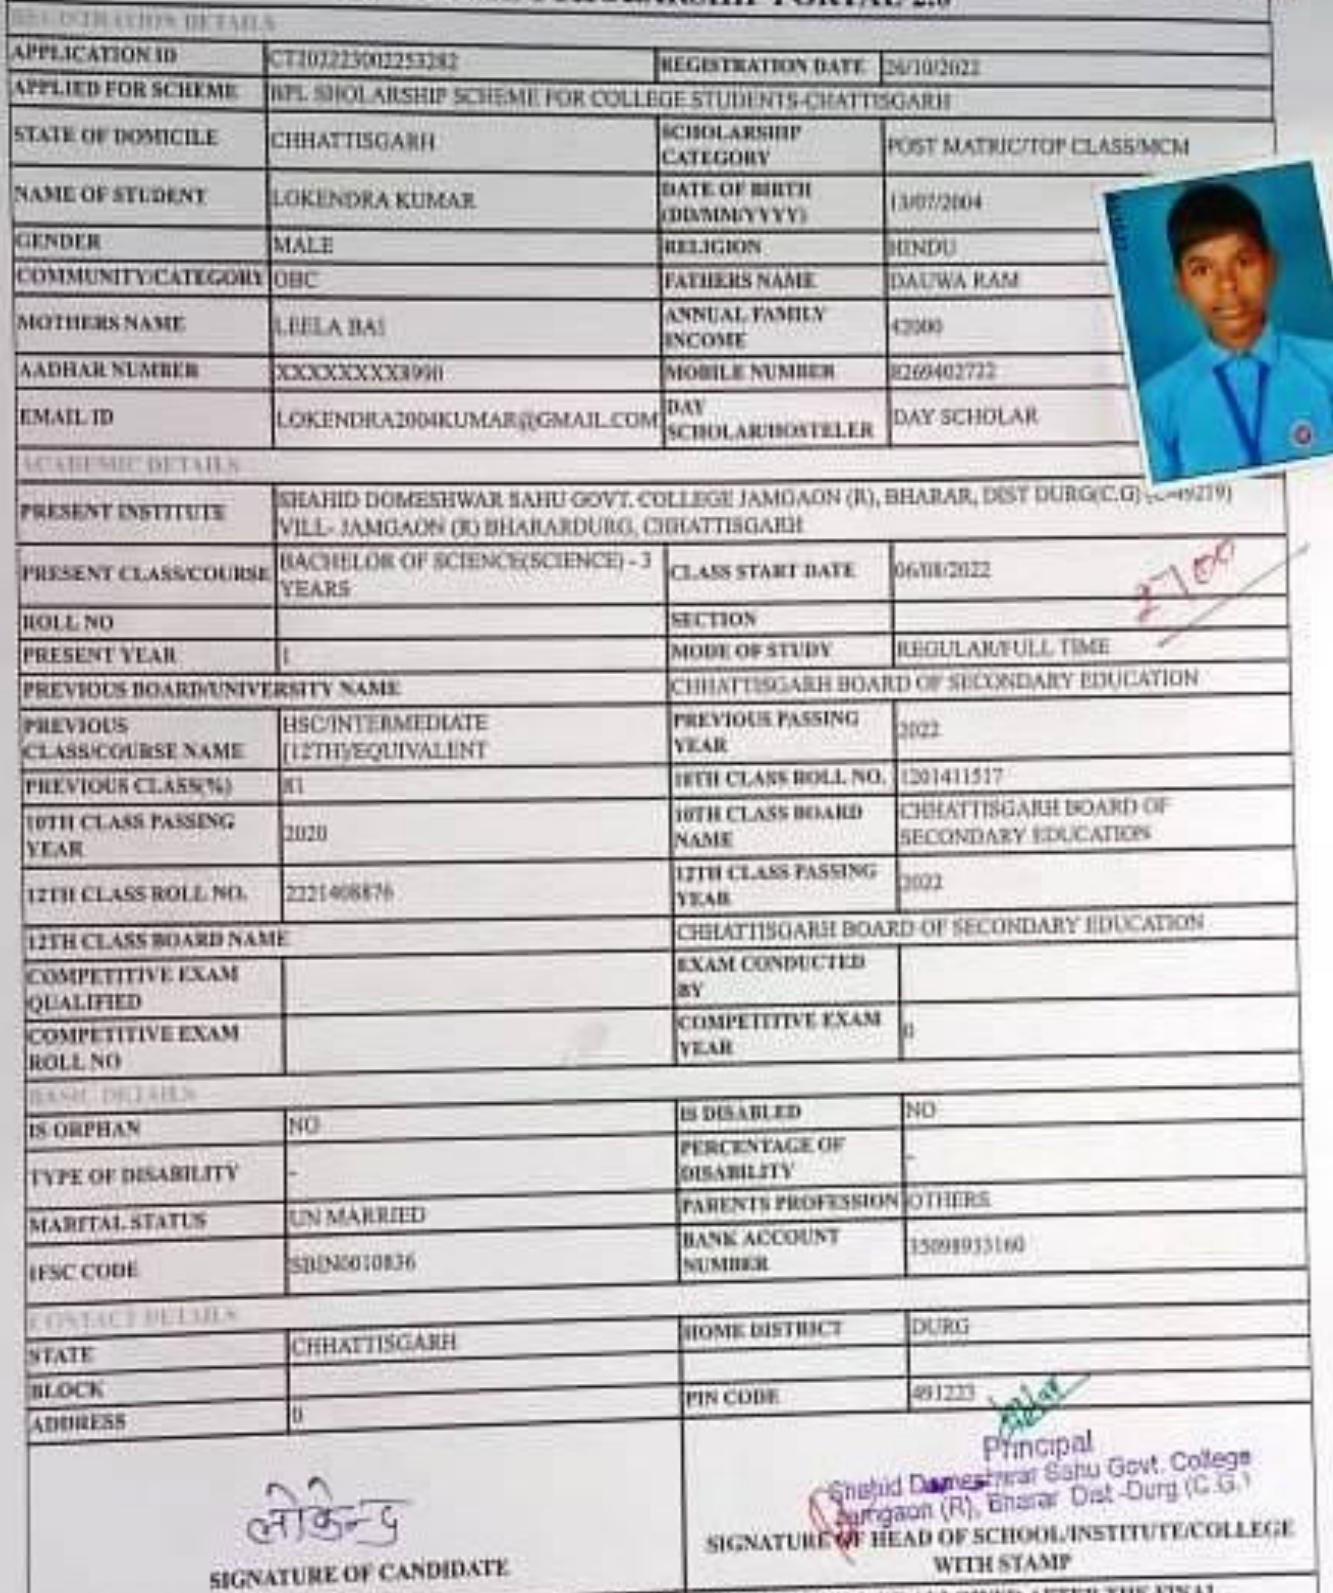 PORTAL 2.0
REGISTRATION DETAILS
APPLICATION ID CT202223002253282 REGISTRATION DATE 26/10/2022
APPLIED FOR SCHEME BPL SHOLARSHIP SCHEME FOR COLLEGE STUDENTS-CHATTISGARH
STATE OF DOMICILE CHHATTISGARH SCHOLARSHIP CATEGORY POST MATRIC/TOP CLASS/MCM
NAME OF STUDENT LOKENDRA KUMAR DATE OF BIRTH (DD/MM/YYYY) 13/07/2004
GENDER MALE RELIGION HINDU
COMMUNITY/CATEGORY OBC FATHERS NAME DAUWA RAM
MOTHERS NAME LEELA BAI ANNUAL FAMILY INCOME 42000
AADHAR NUMBER XXXXXXXX8990 MOBILE NUMBER 8269402722
EMAIL ID LOKENDRA2004KUMAR@GMAIL.COM DAY SCHOLAR/HOSTELER DAY SCHOLAR
ACADEMIC DETAILS
PRESENT INSTITUTE SHAHID DOMESHWAR SAHU GOVT. COLLEGE JAMGAON (R), BHARAR, DIST DURG(C.G)
VILL- JAMGAON (R) BHARARDURG, CHHATTISGARH
PRESENT CLASS/COURSE BACHELOR OF SCIENCE(SCIENCE) - 3 YEARS CLASS START DATE 06/08/2022
2700
ROLL NO SECTION
PRESENT YEAR 1 MODE OF STUDY REGULAR/FULL TIME
PREVIOUS BOARD/UNIVERSITY NAME CHHATTISGARH BOARD OF SECONDARY EDUCATION
PREVIOUS CLASS/COURSE NAME HSC/INTERMEDIATE [12TH)/EQUIVALENT PREVIOUS PASSING YEAR 2022
PREVIOUS CLASS(%) 81 10TH CLASS ROLL NO. 1201411517
10TH CLASS PASSING YEAR 2020 10TH CLASS BOARD NAME CHHATTISGARH BOARD OF SECONDARY EDUCATION
12TH CLASS ROLL NO. 2221408876 12TH CLASS PASSING YEAR 2022
12TH CLASS BOARD NAME CHHATTISGARH BOARD OF SECONDARY EDUCATION
COMPETITIVE EXAM QUALIFIED EXAM CONDUCTED BY
COMPETITIVE EXAM ROLL NO COMPETITIVE EXAM YEAR 0
BASIC DETAILS
IS ORPHAN NO IS DISABLED NO
TYPE OF DISABILITY - PERCENTAGE OF DISABILITY -
MARITAL STATUS UN MARRIED PARENTS PROFESSION OTHERS
IFSC CODE SBIN0010836 BANK ACCOUNT NUMBER 35098933160
CONTACT DETAILS
STATE CHHATTISGARH HOME DISTRICT DURG
BLOCK
ADDRESS 0 PIN CODE 491223
लोकेन्द्र
SIGNATURE OF CANDIDATE
Principal
Shahid Dameshwar Sahu Govt. College
Jamgaon (R), Bharar Dist -Durg (C.G.)
SIGNATURE OF HEAD OF SCHOOL/INSTITUTE/COLLEGE
WITH STAMP